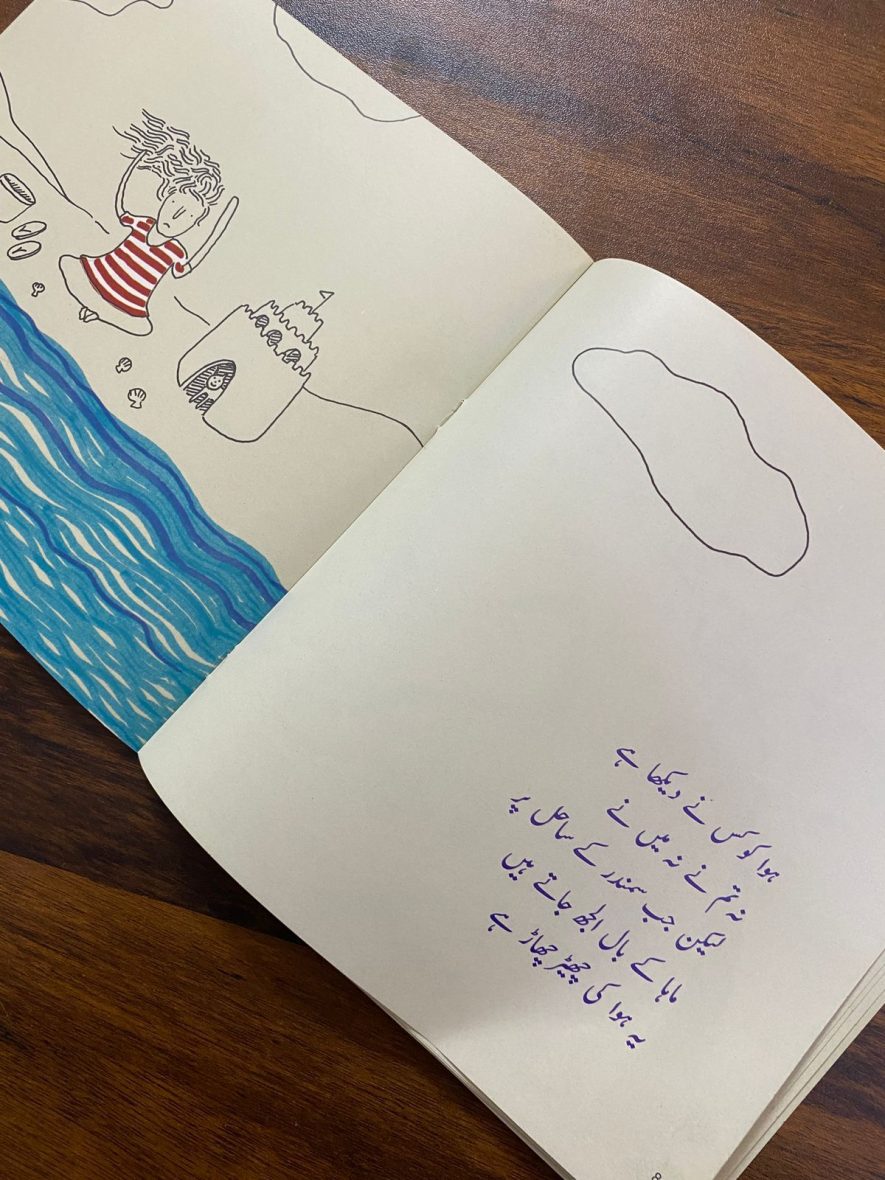 ہوا کو کس نے دیکھا ہے
نہ تم نے نہ میں نے
لیکن جب سمندر کے ساحل پر
ماہا کے بال الجھ جاتے ہیں
یہ ہوا کی چھیڑ چھاڑ ہے
8